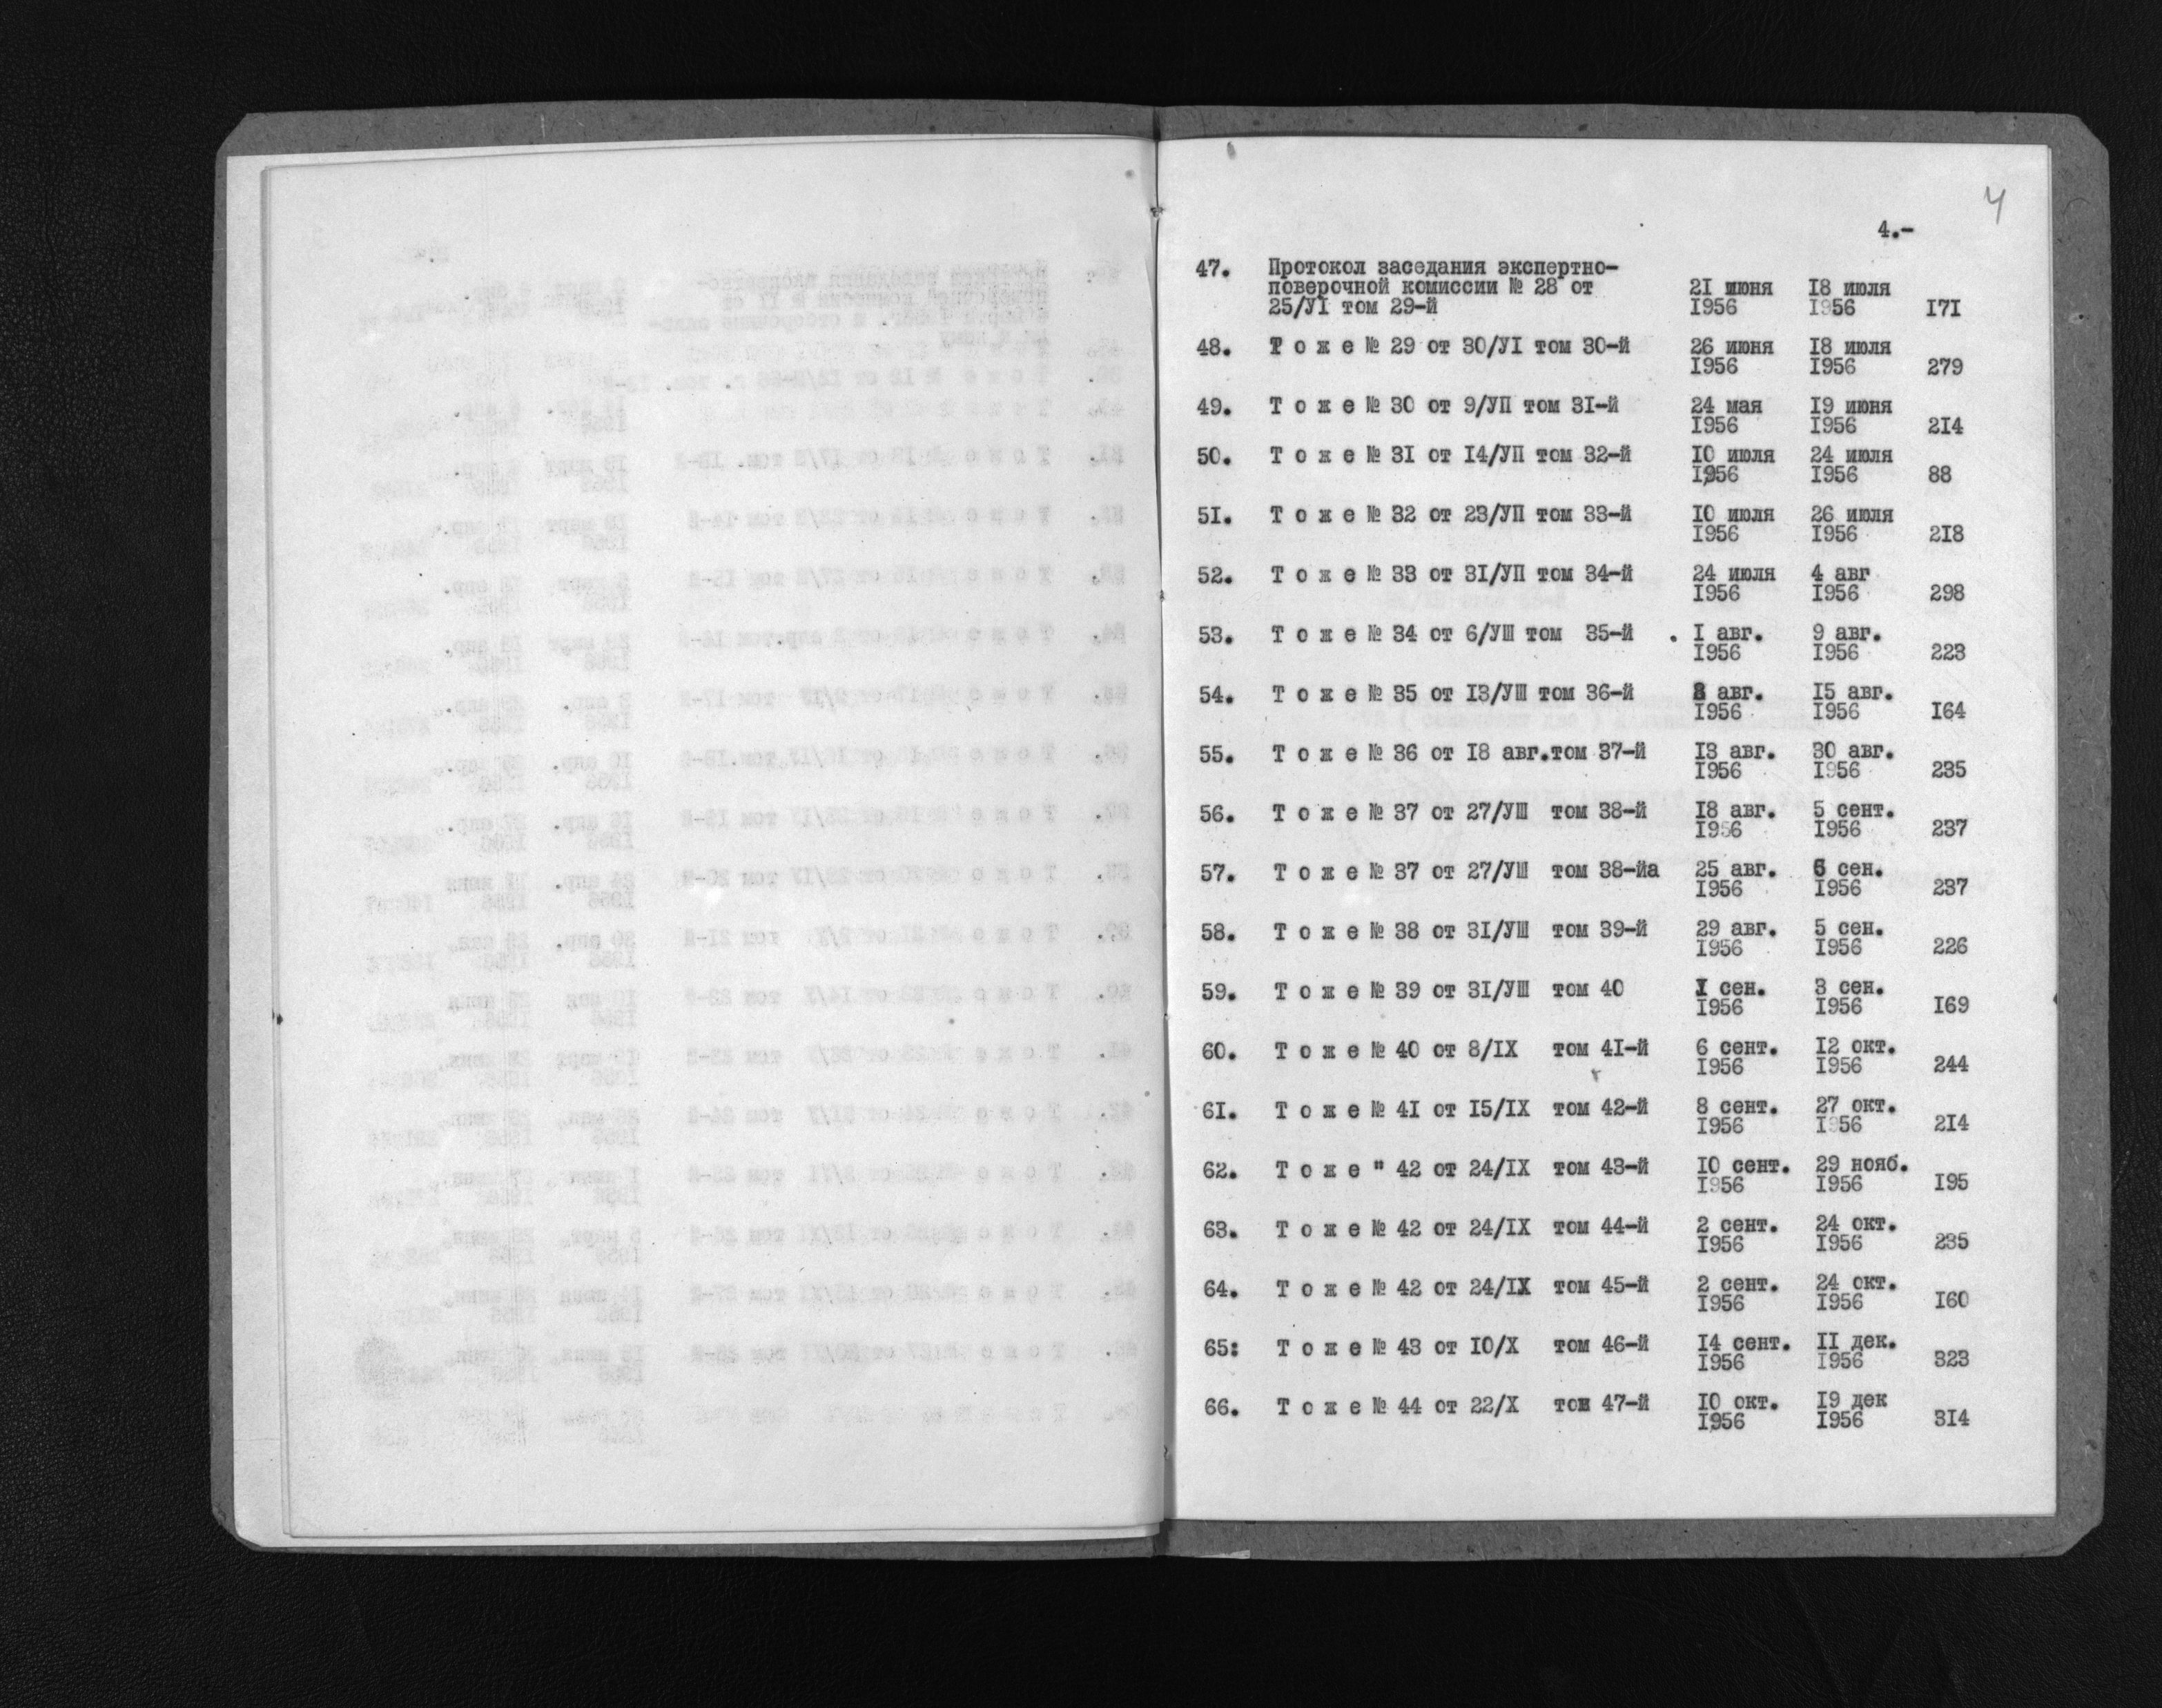 4
4.-
47. Протокол заседания экспертно-
поверочной комиссии № 28 от 21 июня 18 июля
25/УІ том 29-й I956 I956 I7I
48. Т о ж е № 29 от 30/УІ том 30-й 26 июня 18 июля
I956 I956 279
49. Т о ж е № 30 от 9/УП том 3I-й 24 мая I9 июня
I956 I956 2I4
50. Т о ж е № 3I от I4/УП том 32-й I0 июля 24 июля
I956 I956 88
5I. Т о ж е № 32 от 23/УП том 33-й I0 июля 26 июля
I956 I956 2I8
52. Т о ж е № 33 от 3I/УП том 34-й 24 июля 4 авг
I956 I956 298
53. Т о ж е № 34 от 6/УШ том 35-й . I авг. 9 авг.
I956 I956 223
54. Т о ж е № 35 от I3/УШ том 36-й 8 авг. I5 авг.
I956 I956 I64
55. Т о ж е № 36 от I8 авг.том 37-й I3 авг. 30 авг.
I956 I956 235
56. Т о ж е № 37 от 27/УШ том 38-й I8 авг. 5 сент.
I956 I956 237
57. Т о ж е № 37 от 27/УШ том 38-йа 25 авг. 6 сен.
I956 I956 237
58. Т о ж е № 38 от 3I/УШ том 39-й 29 авг. 5 сен.
I956 I956 226
59. Т о ж е № 39 от 3I/УШ том 40 I сен. 3 сен.
I956 I956 I69
60. Т о ж е № 40 от 8/IX том 4I-й 6 сент. I2 окт.
I956 I956 244
6I. Т о ж е № 4I от I5/IX том 42-й 8 сент. 27 окт.
I956 I956 2I4
62. Т о ж е " 42 от 24/IX том 43-й I0 сент. 29 нояб.
I956 I956 I95
63. Т о ж е № 42 от 24/IX том 44-й 2 сент. 24 окт.
I956 I956 235
64. Т о ж е № 42 от 24/IX том 45-й 2 сент. 24 окт.
I956 I956 I60
65: Т о ж е № 43 от I0/X том 46-й I4 сент. II дек.
I956 I956 323
66. Т о ж е № 44 от 22/X том 47-й I0 окт. I9 дек
I956 I956 3I4